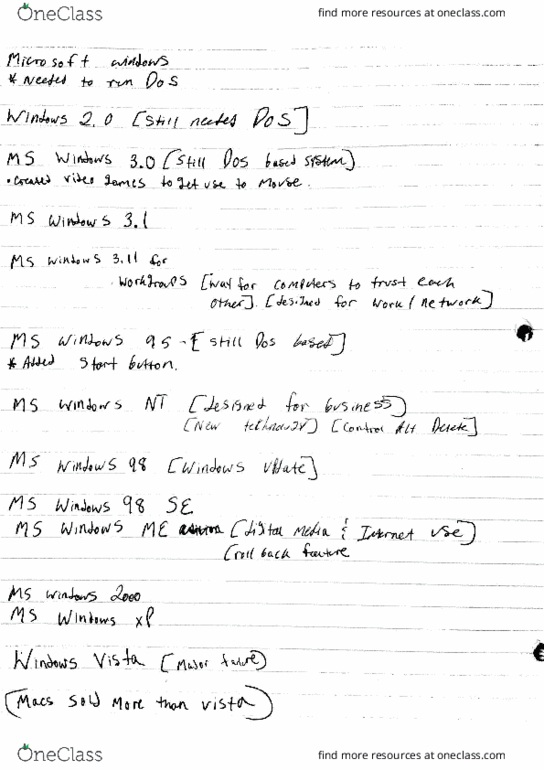 OneClass
find more resources at oneclass.com
Microsoft windows
* Needed to run DOS
Windows 2.0 [Still needed DOS]
MS Windows 3.0 [Still DOS based system]
• Created video games to get use to mouse.
MS Windows 3.1
MS Windows 3.11 for
workgroups [way for computers to trust each
other]. [designed for work / network]
MS Windows 95 - [still DOS based]
* Added Start button.
MS Windows NT [designed for business]
[New technology] [Control Alt Delete]
MS Windows 98 [Windows update]
MS Windows 98 SE
MS Windows ME [digital media & Internet use]
[roll back feature
MS Windows 2000
MS Windows XP
Windows Vista [Major failure]
(Macs sold more than vista)
OneClass
find more resources at oneclass.com